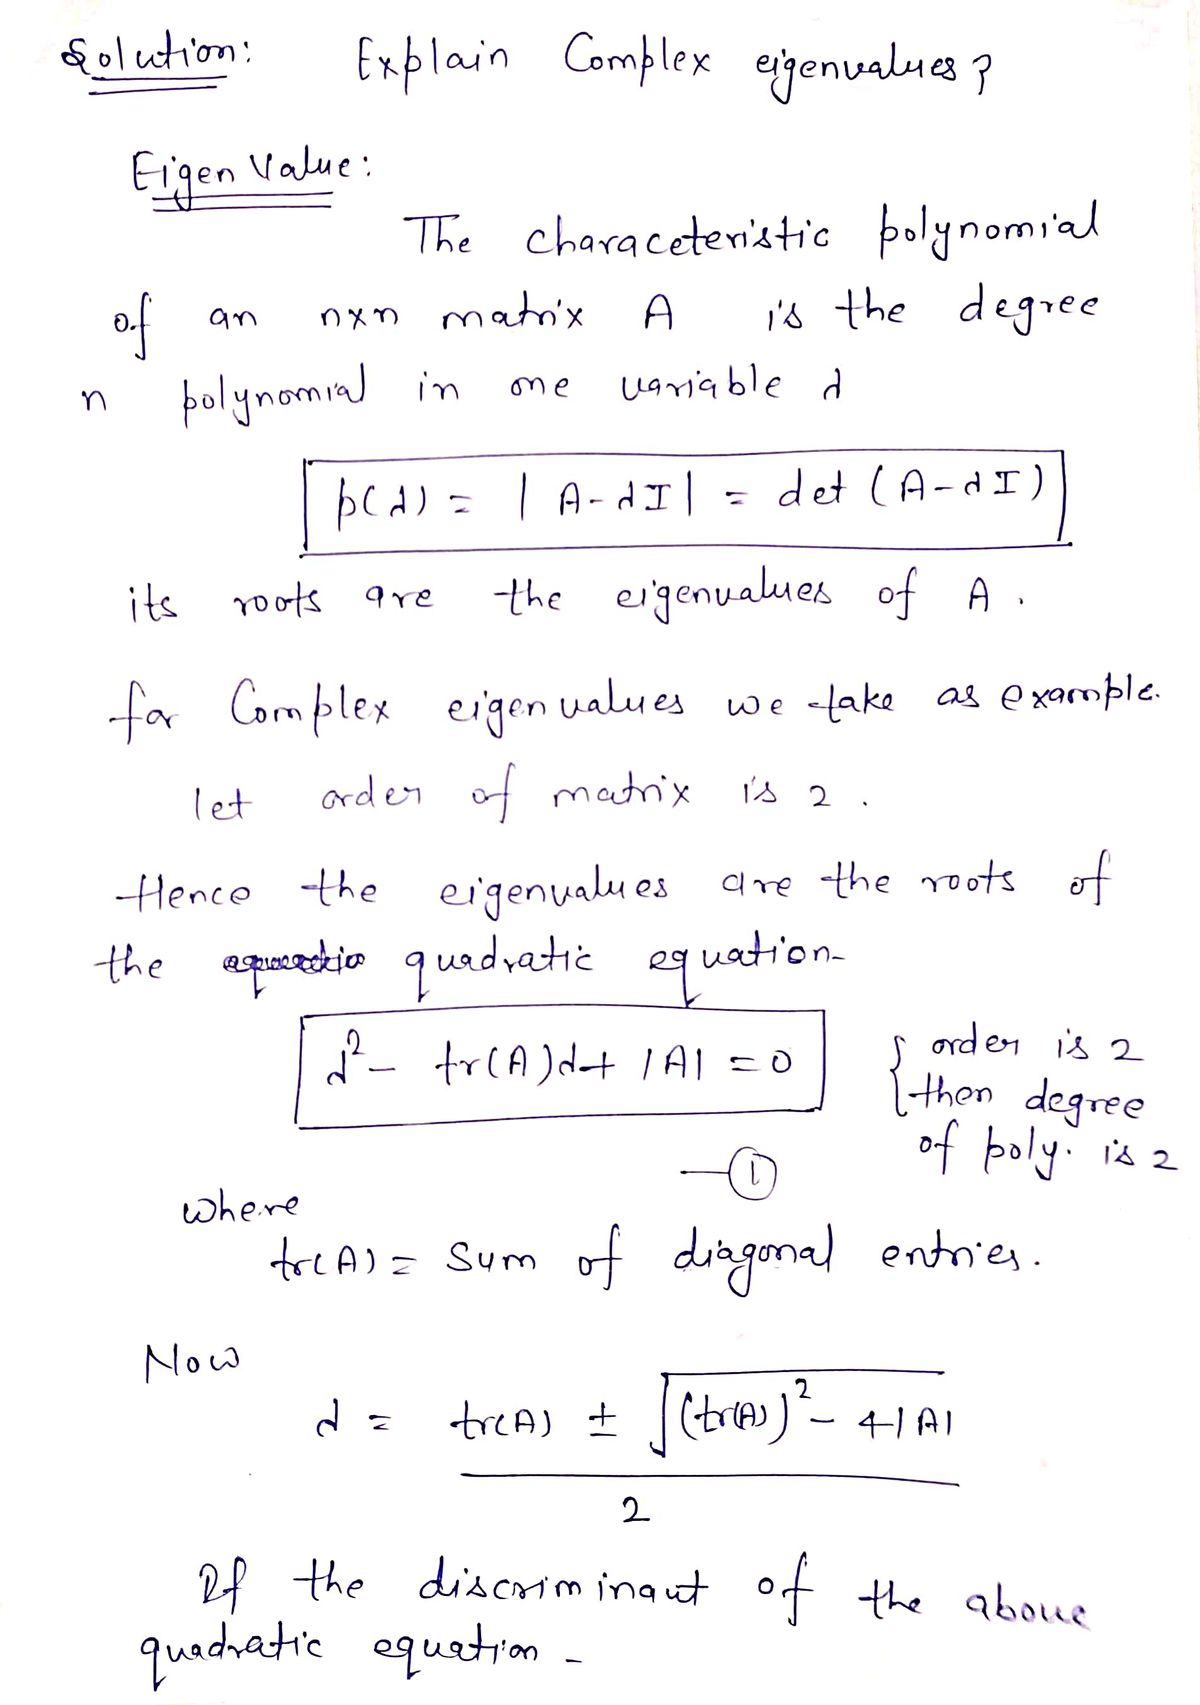 Solution: Explain Complex eigenvalues?
Eigen Value:
The characeteristic polynomial
of an n×n matrix A is the degree
n polynomial in one variable λ
p(λ) = |A-λI| = det (A-λI)
its roots are the eigenvalues of A.
for Complex eigenvalues we take as example.
let order of matrix is 2.
Hence the eigenvalues are the roots of
the quadratic equation-
λ² - tr(A)λ + |A| = 0 { order is 2
then degree
of poly. is 2
—①
where
tr(A) = Sum of diagonal entries.
Now
λ = tr(A) ± √(tr(A))² - 4|A|
2
If the discriminant of the above
quadratic equation -